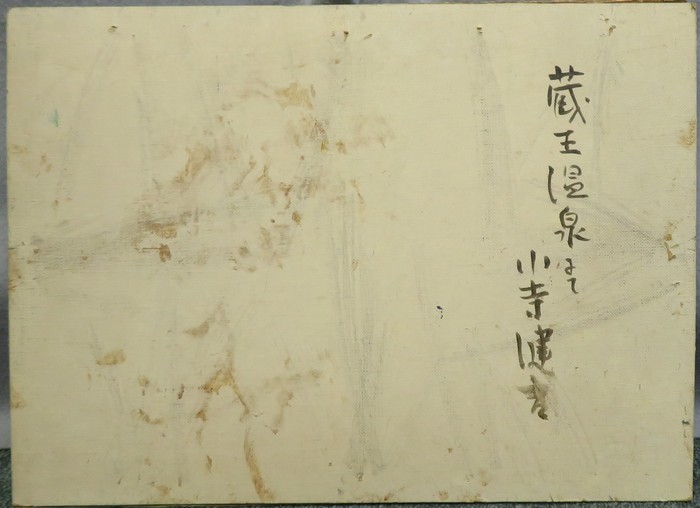 蔵王温泉にて
小寺健吉